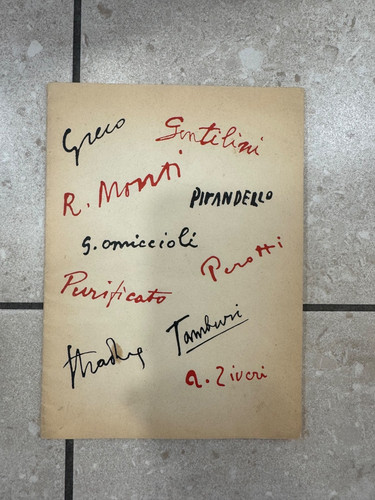 Greco
Gentilini
R. Monti
PIRANDELLO
G. omiccioli
Perotti
Purificato
Tamburi
Stradone
a. Ziveri